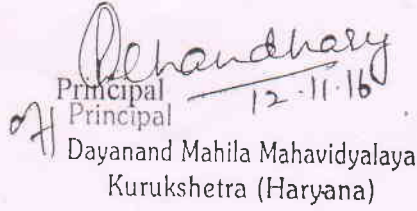 12.11.16
Principal
Principal
Dayanand Mahila Mahavidyalaya
Kurukshetra (Haryana)